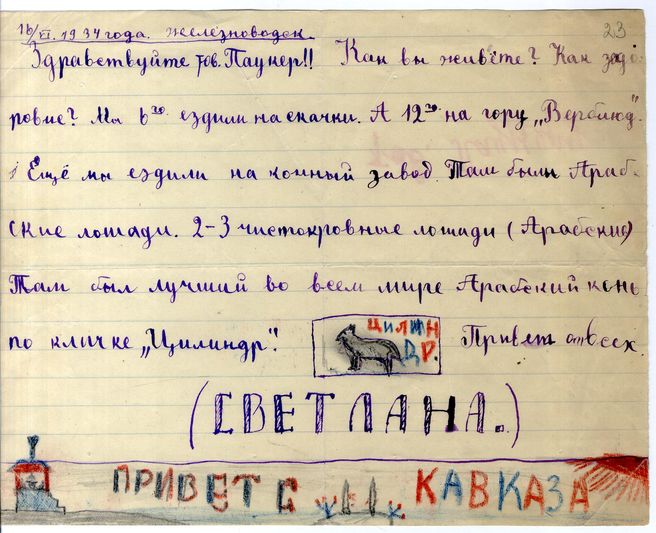 16/VI. 1934 года. Железноводск.
23
Здравствуйте тов. Паукер!! Как вы живёте? Как здо-
ровие? Мы 6го ездили на скачки. А 12го на гору „Верблюд".
Ещё мы ездили на конный завод. Там были Араб-
ские лошади. 2-3 чистокровные лошади (Арабские)
Там был лучший во всем мире Арабский конь
по кличке „Цилиндр".
ЦИЛИН
ДР.
Привет от всех.
(СВЕТЛАНА.)
ПРИВЕТ С КАВКАЗА